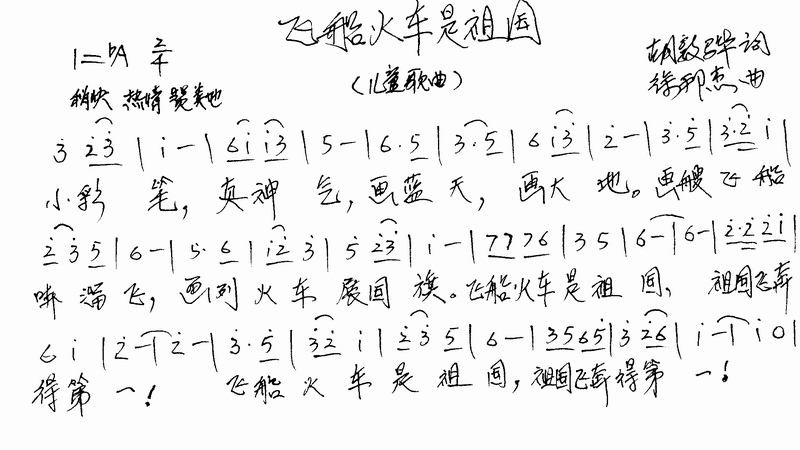 飞船火车是祖国
1=♭A 2/4
(儿童歌曲)
词
稍快 热情 赞美地
徐邦杰 曲
3 2̇3̇ | i - | 6i i3̇ | 5 - | 6. 5 | 3. 5 | 6 i3̇ | 2̇ - | 3̇. 5̇ | 3̇. 2̇ i |
小彩 笔, 真神 气, 画蓝 天, 画大 地。画艘飞船
2̇ 3̇ 5 | 6 - | 5. 6 | i2̇ 3̇ | 5 2̇3̇ | i - | 77 76 | 3 5 | 6 - | 6 - | 2̇. 2̇ 2̇i |
溜飞, 画列火车 展国旗。飞船火车是祖国, 祖国飞奔
6 i | 2̇ - | 2̇ - | 3̇. 5̇ | 3̇2̇ i | 2̇ 3̇ 5 | 6 - | 3565 | 3 2̇6 | i - | i 0 |
得第一! 飞船火车是祖国, 祖国飞奔得第一!